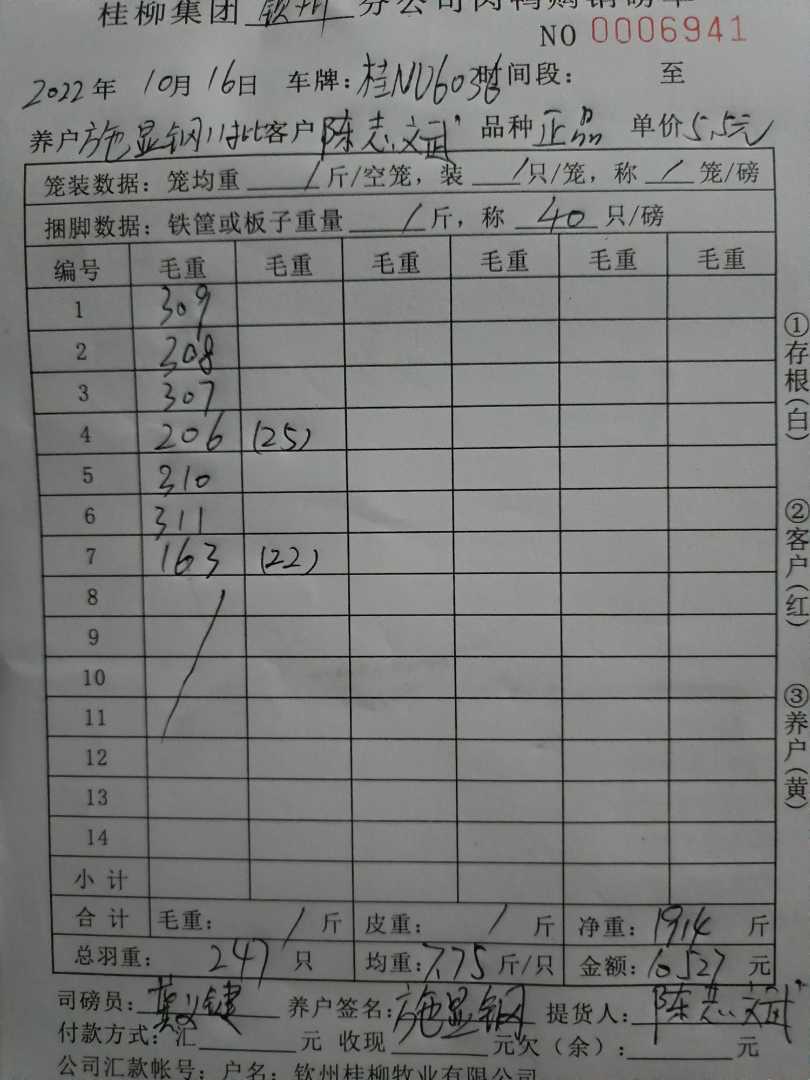 桂柳集团 钦州 分公司肉鸭购销磅单
NO 0006941
2022年 10月 16日 车牌:桂NU6036 时间段: 至
养户 施显钢 11批 客户 陈志斌 品种 正品 单价 5.5元
笼装数据: 笼均重 / 斤/空笼, 装 / 只/笼, 称 / 笼/磅
捆脚数据: 铁筐或板子重量 / 斤, 称 40 只/磅
编号 毛重 毛重 毛重 毛重 毛重 毛重
1 309
2 308
3 307
4 206 (25)
5 310
6 311
7 163 (22)
8
9
10
11
12
13
14
小计
合计 毛重: / 斤 皮重: / 斤 净重: 1914 斤
总羽重: 247 只 均重: 7.75 斤/只 金额: 10527 元
司磅员: 养户签名: 施显钢 提货人: 陈志斌
付款方式: 汇 元 收现 元 欠(余): 元
公司汇款帐号: 户名: 钦州桂柳牧业有限公司
①存根(白)
②客户(红)
③养户(黄)